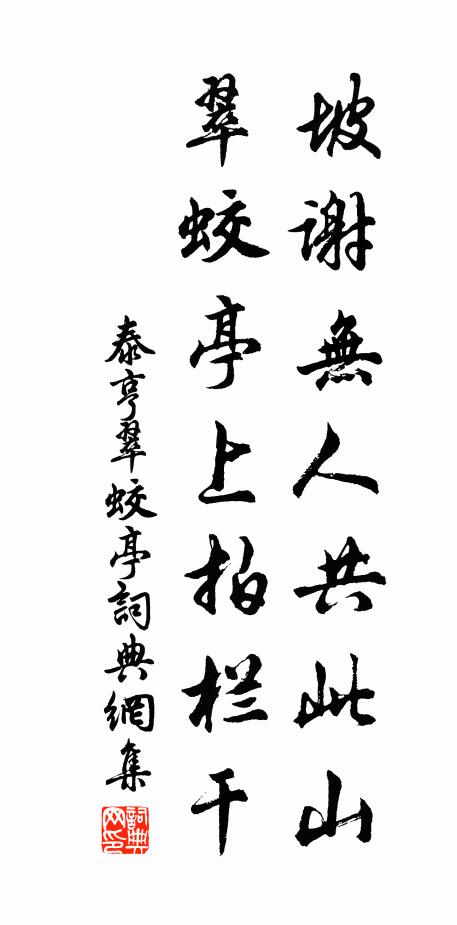 坡谢無人共此山
翠蛟亭上拍栏干
泰亨翠蛟亭詞典網集
詞典
网印